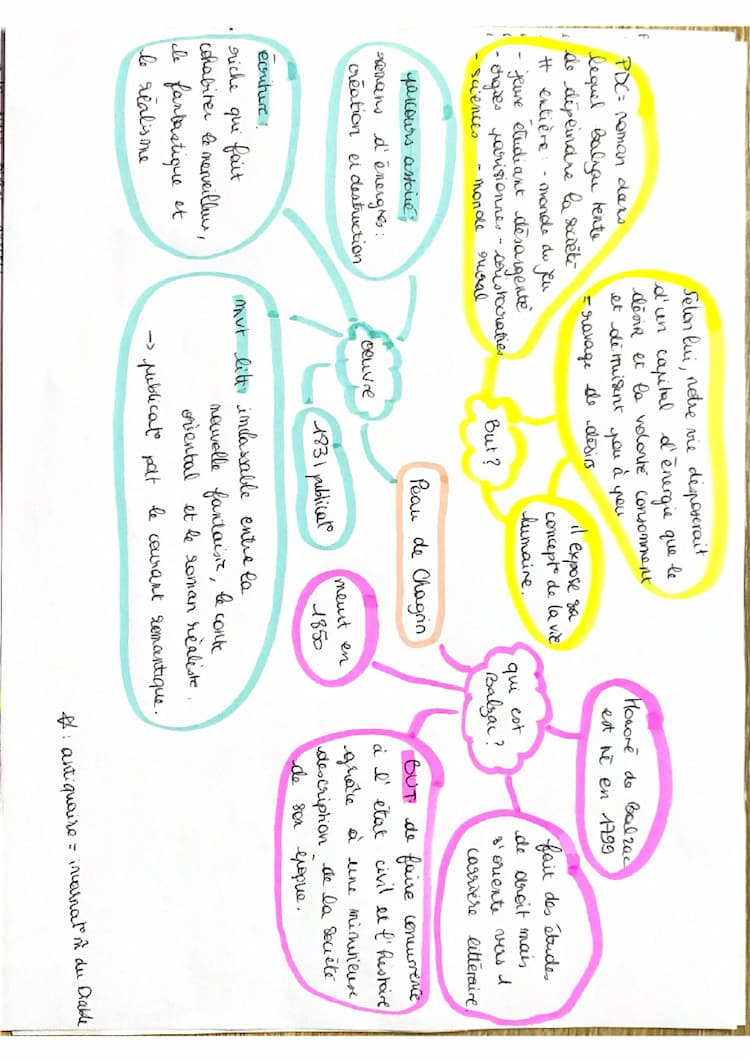 Peau de Chagrin
But ?
PDC = roman dans
lequel Balzac tente
de dépeindre la société
# entière : - monde du jeu
- jeune étudiant désargenté
- orgies parisiennes - aristocraties
- sciences - monde rural
Selon lui, notre vie disposerait
d'un capital d'énergie que le
désir et la volonté consomment
et détruisent peu à peu
= ravage de désirs
il expose sa
concept° de la vie
humaine.
qui est
Balzac ?
Honoré de Balzac
est né en 1799
fait des études
de droit mais
s'oriente vers 1
carrière littéraire.
BUT de faire concurrence
à l'état civil et l'histoire
grâce à une minutieuse
description de la société
de son époque.
meurt en
1850
oeuvre
parcours associé :
romans d'énergies :
création et destruction
écriture :
riche qui fait
cohabiter le merveilleux,
le fantastique et
le réalisme
1831 publicat°
mvt litt inclassable entre la
nouvelle fantaisie, le conte
oriental et le roman réaliste.
→ publicat° pdt le courant romantique.
: antiquaire = incarnat° du Diable